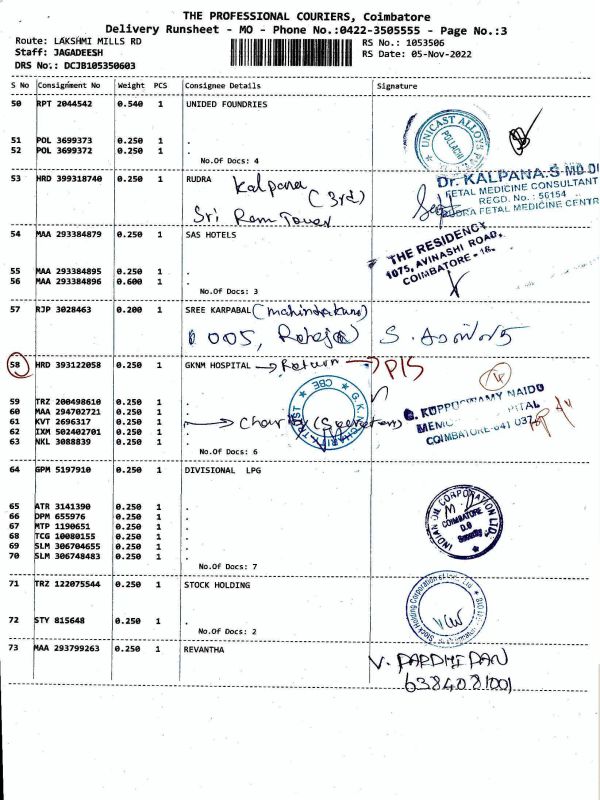 THE PROFESSIONAL COURIERS, Coimbatore
Delivery Runsheet - MO - Phone No.:0422-3505555 - Page No.:3
Route: LAKSHMI MILLS RD
RS No.: 1053506
Staff: JAGADEESH
RS Date: 05-Nov-2022
DRS No.: DCJB105350603
S No Consignment No Weight PCS Consignee Details Signature
50 RPT 2044542 0.540 1 UNIDED FOUNDRIES
UNICAST ALLOYS
POLLACHI
51 POL 3699373 0.250 1 .
52 POL 3699372 0.250 1 .
No.Of Docs: 4
53 HRD 399318740 0.250 1 RUDRA Kalpana
(3rd)
Sri Ram Tower
Dr. KALPANA.S MD
FETAL MEDICINE CONSULTANT
REGD. No.: 56154
RUDRA FETAL MEDICINE CENTR
54 MAA 293384879 0.250 1 SAS HOTELS
THE RESIDENCY
1075, AVINASHI ROAD,
COIMBATORE - 18.
55 MAA 293384895 0.250 1 .
56 MAA 293384896 0.600 1 .
No.Of Docs: 3
57 RJP 3028463 0.200 1 SREE KARPABAL
1005,
58 HRD 393122058 0.250 1 GKNM HOSPITAL Return PIS
59 TRZ 200498610 0.250 1 .
60 MAA 294702721 0.250 1 .
61 KVT 2696317 0.250 1
62 IXM 502402701 0.250 1 .
63 NKL 3088839 0.250 1 .
No.Of Docs: 6
CBE
TRUST
G. KUPPUSWAMY NAIDU
MEMORIAL HOSPITAL
COIMBATORE-641 037
64 GPM 5197910 0.250 1 DIVISIONAL LPG
65 ATR 3141390 0.250 1 .
66 DPM 655976 0.250 1 .
67 MTP 1190651 0.250 1 .
68 TCG 10080155 0.250 1 .
69 SLM 306704655 0.250 1 .
70 SLM 306748483 0.250 1 .
No.Of Docs: 7
INDIAN OIL CORPORATION LTD.
COIMBATORE
D.O
Security
71 TRZ 122075544 0.250 1 STOCK HOLDING
Stock Holding Corporation of
72 STY 815648 0.250 1 .
No.Of Docs: 2
73 MAA 293799263 0.250 1 REVANTHA
V. PARDHIPAN
6384081001